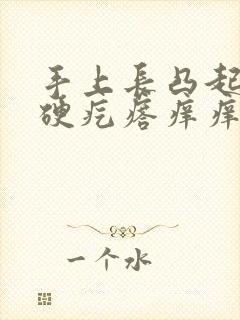 手上長凸起
硬疙瘩痒痒
一个水